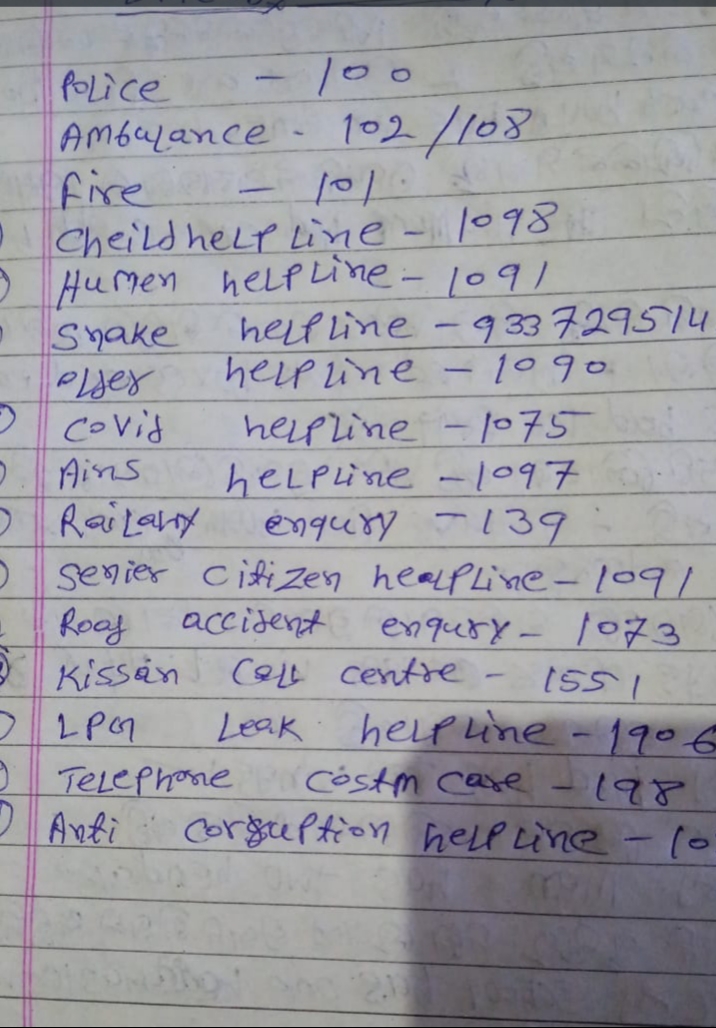 Police - 100
Ambulance - 102/108
Fire - 101
Cheildhelp line - 1098
Humen helpline - 1091
Snake helpline - 933729514
older helpline - 1090
Covid helpline - 1075
Aids helpline - 1097
Railway enqury - 139
Senier Citizen healpline - 1091
Road accident enqury - 1073
Kissan Call centre - 1551
LPG Leak helpline - 1906
Telephone Costm Care - 198
Anti Corruption helpline - 10